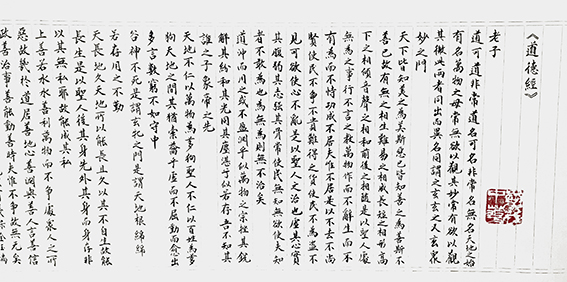 《道德經》
老子
道可道非常道名可名非常名無名天地之始
有名萬物之母常無欲以觀其妙常有欲以觀
其徼此兩者同出而異名同謂之玄玄之又玄衆
妙之門
天下皆知美之為美斯惡已皆知善之為善斯不
善已故有無之相生難易之相成長短之相形高
下之相傾音聲之相和前後之相隨是以聖人處
無為之事行不言之教萬物作而不辭生而不
有為而不恃功成不居夫唯不居是以不去不尚
賢使民不爭不貴難得之貨使民不為盜不
見可欲使心不亂是以聖人之治也虛其心實
其腹弱其志强其骨常使民無知無欲使夫知
者不敢為也為無為則無不治矣
道沖而用之或不盈淵乎似萬物之宗挫其銳
解其紛和其光同其塵湛兮似若存吾不知其
誰之子象帝之先
天地不仁以萬物為芻狗聖人不仁以百姓為芻
狗天地之間其猶橐籥乎虛而不屈動而愈出
多言數窮不如守中
谷神不死是謂玄牝之門是謂天地根綿綿
若存用之不勤
天長地久天地所以能長且久以其不自生故能
長生是以聖人後其身先外其身而身存非
以其無私耶故能成其私
上善若水水善利萬物而不爭處衆人之所
惡故幾於道居善地心善淵與善人言善信
政善治事善能動善時夫唯不爭故無尤矣